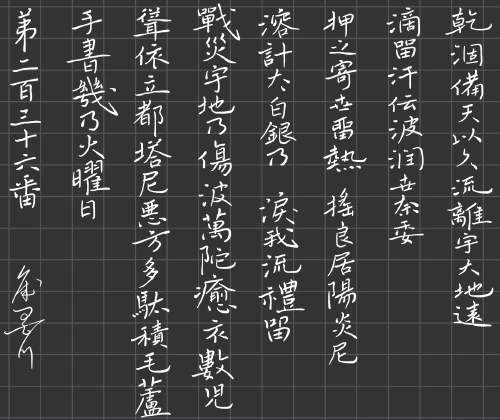 乾涸備天以久流離宇大地遠
滴留汗伝波润世奈委
押之寄世留熱 搖良居陽炎尼
溶計太白銀乃 涙我流禮留
戰災宇地乃傷波萬陀癒衣數児
聳依立都塔尼悪方多駄積毛蘆
手書幾乃火曜日
第二百三十六番